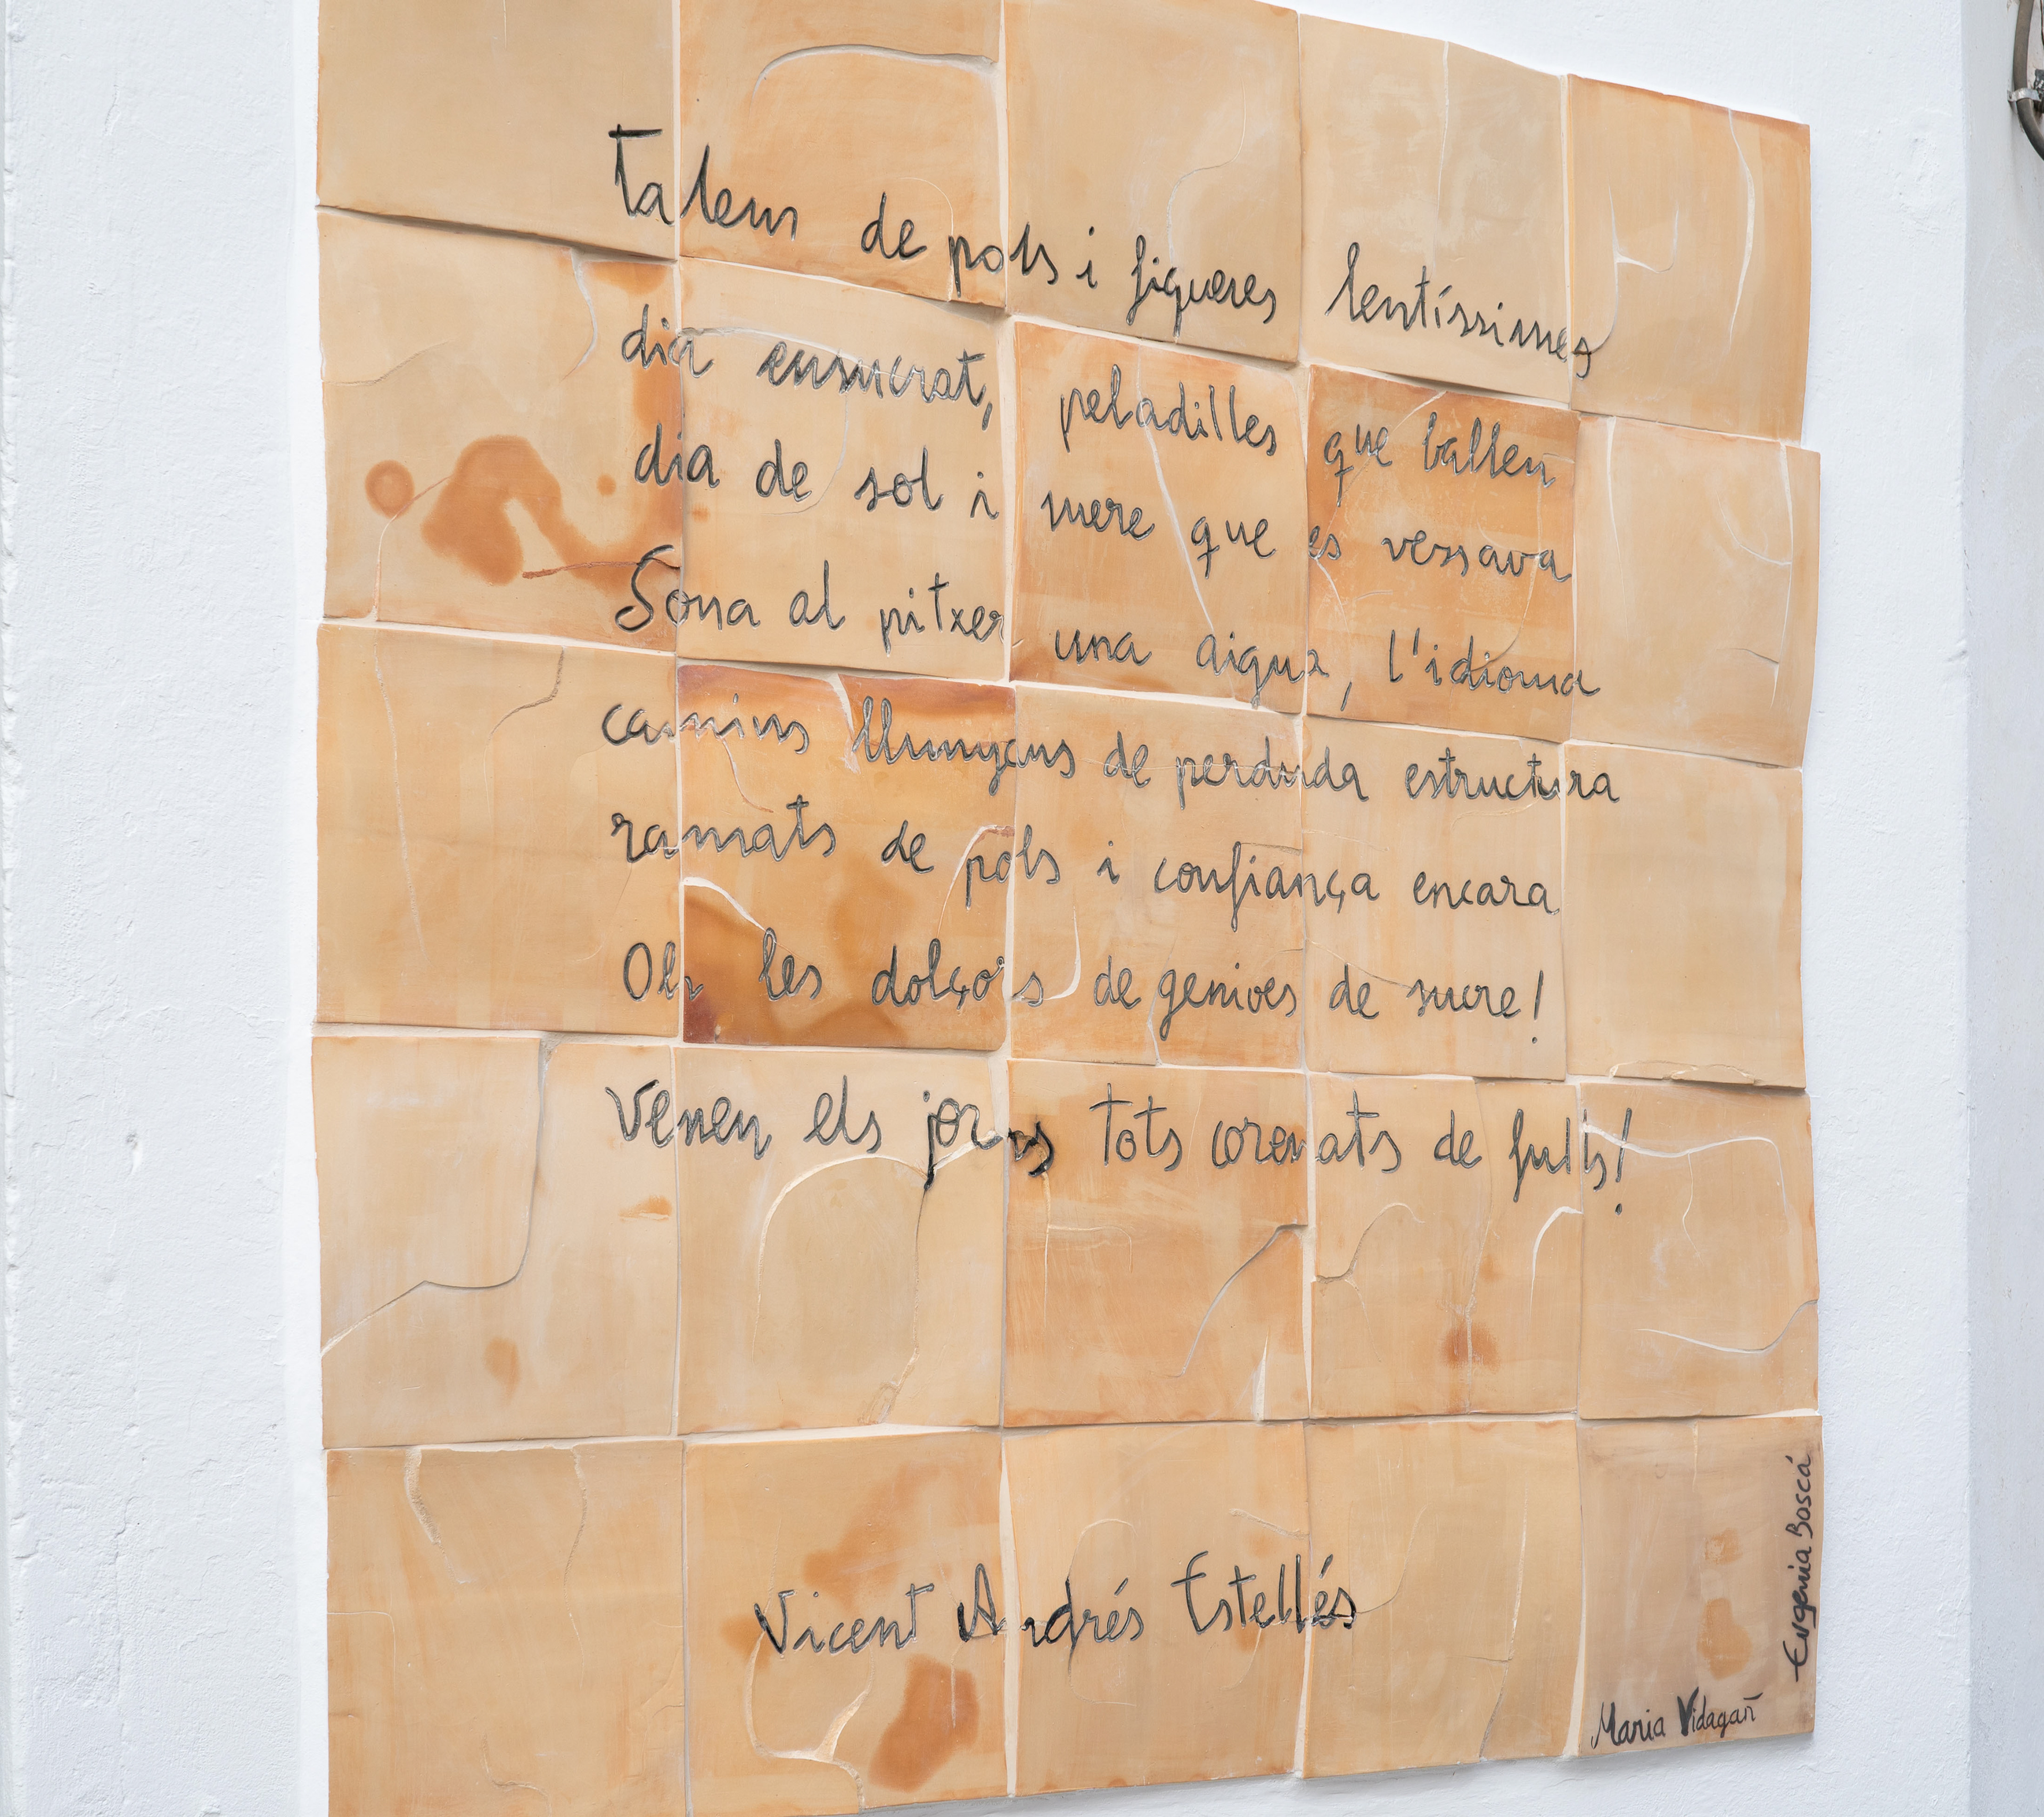 Talens de pols i figueres lentíssimes
dia ensucrat, peladilles que ballen
dia de sol i sucre que es vessava
Sona al pitxer una aigua, l'idioma
camins llunyans de perduda estructura
ramats de pols i confiança encara
Oh les dolçors de genives de sucre!
Venen els jorns tots coronats de fulls!
Vicent Andrés Estellés
Maria Vidagañ
Eugenia Boscá